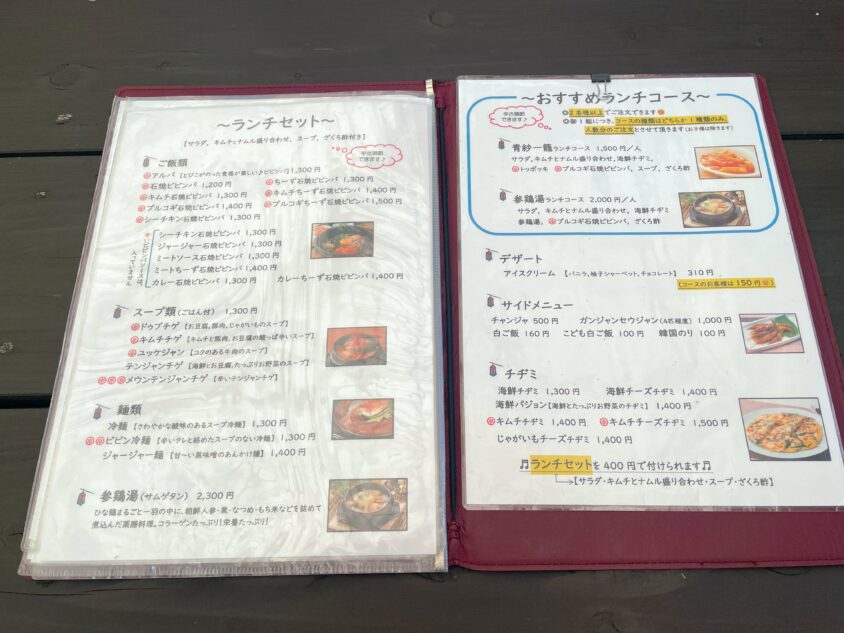 ～ランチセット～
【サラダ、キムチとナムル盛り合わせ、スープ、ざくろ酢付き】
辛さ調節
できます♪
ご飯類
アルバ【とびこがのった食感が楽しい♪ビビンバ】1,300円
石焼ビビンバ 1,200円
ちーず石焼ビビンバ 1,300円
キムチ石焼ビビンバ 1,300円
キムチちーず石焼ビビンバ 1,400円
プルコギ石焼ビビンバ 1,400円
プルコギちーず石焼ビビンバ 1,500円
シーチキン石焼ビビンバ 1,300円
辛いビビンバソースは、
入っていません
シーチキン石焼ビビンバ 1,300円
ジャージャー石焼ビビンバ 1,300円
ミートソース石焼ビビンバ 1,300円
ミートちーず石焼ビビンバ 1,400円
カレー石焼ビビンバ 1,300円
カレーちーず石焼ビビンバ 1,400円
スープ類(ごはん付) 1,300円
ドゥブチゲ【お豆腐,豚肉,じゃがいものスープ】
キムチチゲ【キムチと豚肉、お豆腐の酸っぱ辛いスープ】
ユッケジャン【コクのある牛肉のスープ】
テンジャンチゲ【海鮮とお豆腐,たっぷりお野菜のスープ】
メウンテンジャンチゲ【辛いテンジャンチゲ】
麺類
冷麺【さわやかな酸味のあるスープ冷麺】1,300円
ビビン冷麺【辛いタレと絡めたスープのない冷麺】1,300円
ジャージャー麺【甘～い黒味噌のあんかけ麺】1,400円
参鶏湯(サムゲタン) 2,300円
ひな鶏まるごと一羽の中に、朝鮮人参・栗・なつめ・もち米などを詰めて
煮込んだ薬膳料理。コラーゲンたっぷり!栄養たっぷり!
～おすすめランチコース～
辛さ調節
できます♪
2名様以上でご注文できます
御1組につき、コースの種類はどちらか1種類のみ、
人数分のご注文とさせて頂きます(お子様は除きます)
青紗一龍ランチコース 1,500円/人
サラダ、キムチとナムル盛り合わせ,海鮮チヂミ,
トッポッキ、プルコギ石焼ビビンバ、スープ、ざくろ酢
参鶏湯ランチコース 2,000円/人
サラダ、キムチとナムル盛り合わせ、海鮮チヂミ
参鶏湯、プルコギ石焼ビビンバ、ざくろ酢
デザート
アイスクリーム 【バニラ,柚子シャーベット,チョコレート】 310円
(コースのお客様は150円)
サイドメニュー
チャンジャ 500円 ガンジャンセウジャン(4匹程度) 1,000円
白ご飯 160円 こども白ご飯 100円 韓国のり 100円
チヂミ
海鮮チヂミ 1,300円 海鮮チーズチヂミ 1,400円
海鮮パジョン【海鮮とたっぷりお野菜のチヂミ】 1,400円
キムチチヂミ 1,400円 キムチチーズチヂミ 1,500円
じゃがいもチーズチヂミ 1,400円
♬ランチセットを400円で付けられます♬
【サラダ・キムチとナムル盛り合わせ・スープ・ざくろ酢】